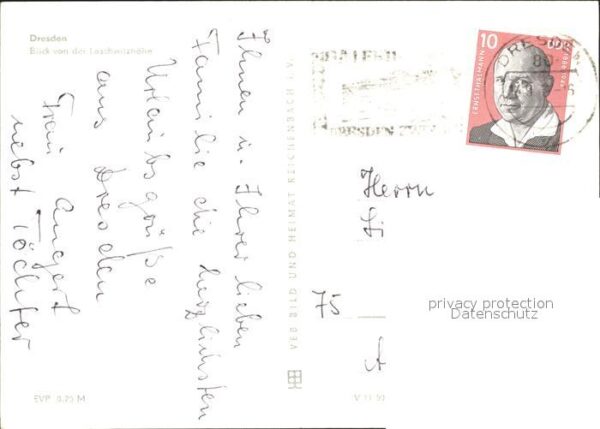 Dresden
Blick von der Loschwitzhöhe
Ihnen u. Ihrer lieben
Familie die herzlichsten
Urlaubsgrüße
aus Dresden
Frau Angert
nebst Töchter
EVP 0,20 M
VEB BILD UND HEIMAT REICHENBACH i. V.
V 11 50
10
ERNST THÄLMANN
DRESDEN
80
DRESDEN
Herrn
75
A
privacy protection
Datenschutz